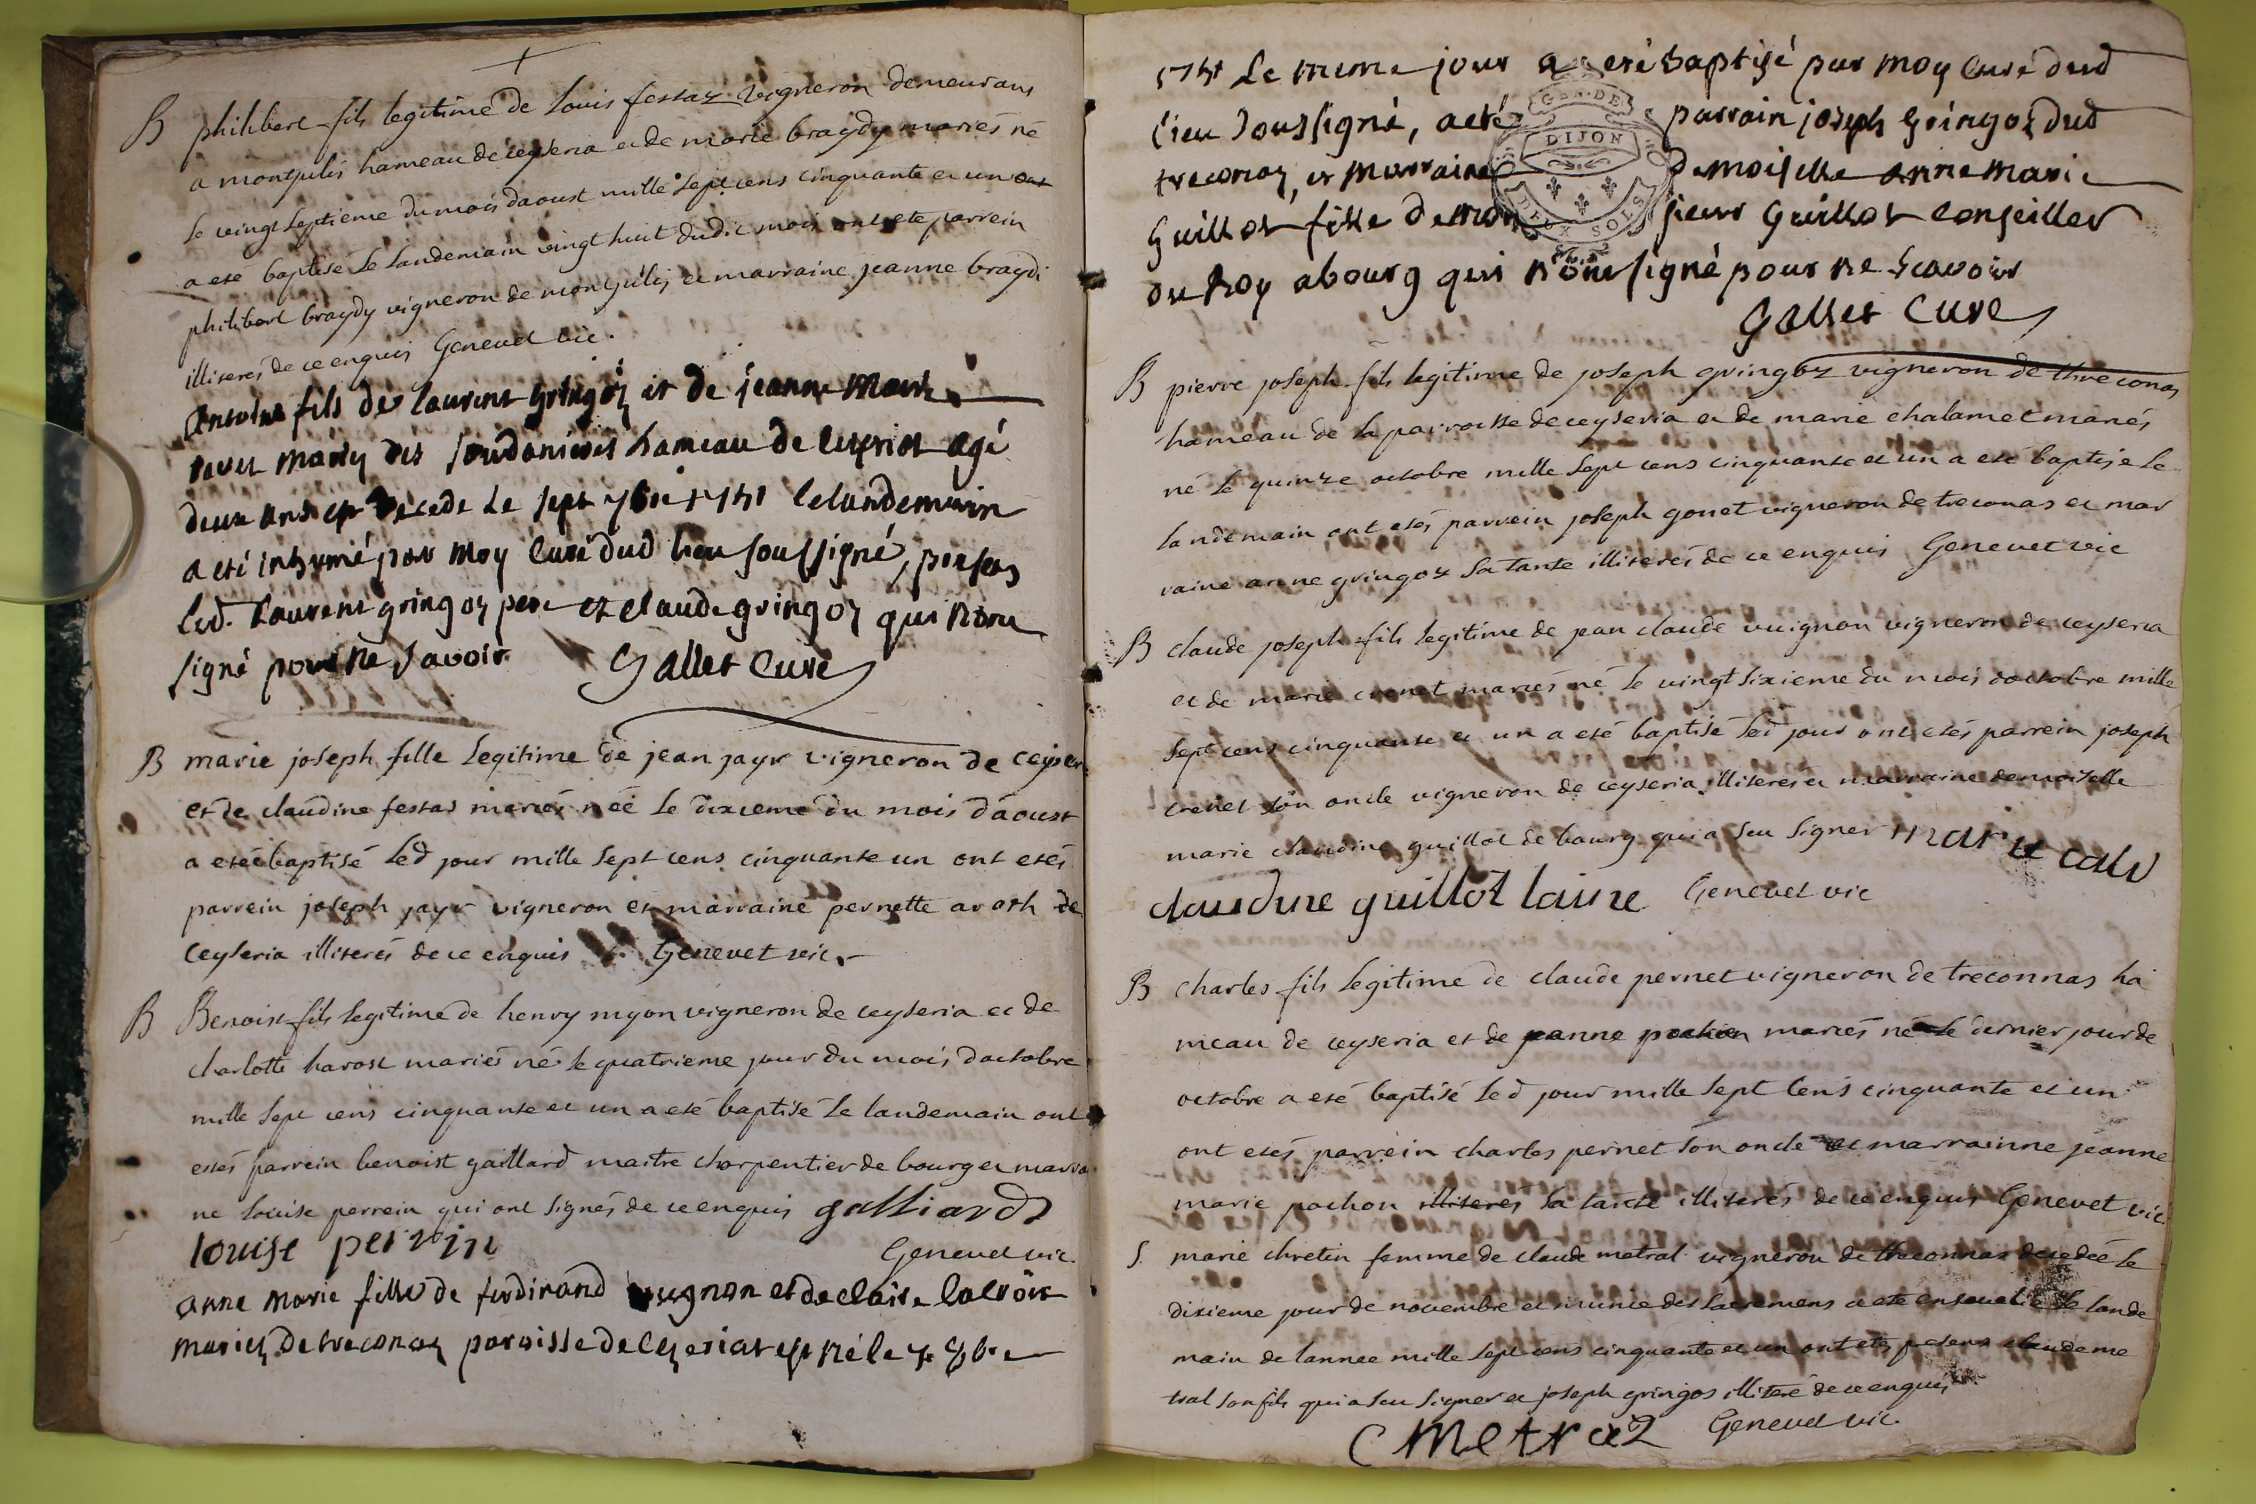 B philibert fils legitime de Louis festaz vigneron demeurans
a montjulis hameau de ceyseria et de marie braydy mariés né
le vingt septieme du mois daoust mille sept cens cinquante et un
a eté baptisé le landemain vingt huit dudit mois ont eté parrein
philibert braydy vigneron de montjulis et marraine jeanne braydi
illiterés de ce enquis Genevet vic.
Antoine fils de laurent gringoz et de jeanne marie
mariez des soudanieres hameau de Ceyzeriat agé
deux ans est decede le sept 7bre 1751 le landemain
a eté inhumé par moy curé dud lieu soussigné, presens
led. Laurent gringoz pere et claude gringoz qui nont
signé pour ne savoir Gallet Curé
B marie joseph fille legitime de jean jayr vigneron de ceyser
et de claudine festas mariés néé le dixieme du mois daoust
a eteé baptisé led jour mille sept cens cinquante un ont etés
parrein joseph jayr vigneron et marraine pernette arosh de
ceyseria illiterés de ce enquis Genevet vic.
B Benoist fils legitime de henry myon vigneron de ceyseria et de
charlotte harost mariés né le quatrieme jour du mois doctobre
mille sept cens cinquante et un a eté baptisé le landemain ont
etés parrein benoist gaillard maitre charpentier de bourg et marrai
ne louise perrein qui ont signés de ce enquis galliard
louise perrin Genevet vic.
anne marie fille de ferdinand vuignon et de claire lacroix
mariez de treconaz paroisse de Cezeriat est né le 7 8bre
1751 Le meme jour a eté baptisé par moy Curé dud
lieu soussigné, a eté parrain joseph Gringoz dud
treconaz, et marraine demoiselle anne marie
guillot fille de monsieur Guillot conseiller
du Roy a bourg qui nont signé pour ne scavoir
Gallet Curé
B pierre joseph fils legitime de joseph gringoz vigneron de threconas
hameau de la parroisse de ceyseria et de marie chalamet mariés
né le quinze octobre mille sept cens cinquante et un a eté baptisé le
landemain ont etés parrein joseph gonet vigneron de treconas et mar
raine anne gringoz sa tante illiterés de ce enquis Genevet vic
B claude joseph fils legitime de jean claude vuignon vigneron de ceyseria
et de marie crenet mariés né le vingt sixieme du mois doctobre mille
sept cens cinquante et un a eté baptisé led jour ont etés parrein joseph
crenet son oncle vigneron de ceyseria illiteres et marraine demoiselle
marie claudine guillot de bourg qui a seu signer marie
claudine guillot lainé Genevet vic
B charles fils legitime de claude pernet vigneron de treconnas ha
meau de ceyseria et de jeanne pochon mariés né le dernier jour de
octobre a eté baptisé led jour mille sept cens cinquante et un
ont etés parrein charles pernet son oncle et marrainne jeanne
marie pochon illiteres sa tante illiterés de ce enquis Genevet vic
S. marie chretin femme de claude metral vigneron de threconnas decedeé le
dixieme jour de novembre et munie des sacremens a eté ensevelie le lande
main de lannee mille sept cens cinquante et un ont etés presens claude me
tral son fils qui a seu signer et joseph gringos illiteré de ce enquis
C Metral Genevet vic.
GEN. DE
DIJON
DEUX SOLS